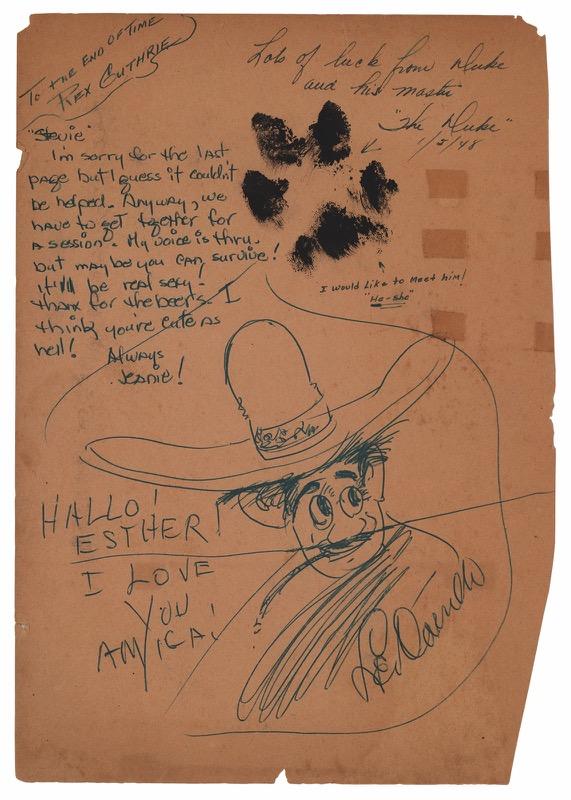 To the END OF TIME
REX GUTHRIE
Lots of luck from Duke
and his master
"The Duke"
1/5/48
"Stevie"
I'm sorry for the last
page but I guess it couldn't
be helped. Anyway, we
have to get together for
a session. My voice is thru.
but maybe you can survive!
it'll be real sexy -
thanx for the beers. I
think you're cute as
hell!
Always
Jeanie!
I would like to meet him!
"He-she"
HALLO!
ESTHER!
I LOVE
YOU
AMIGA!